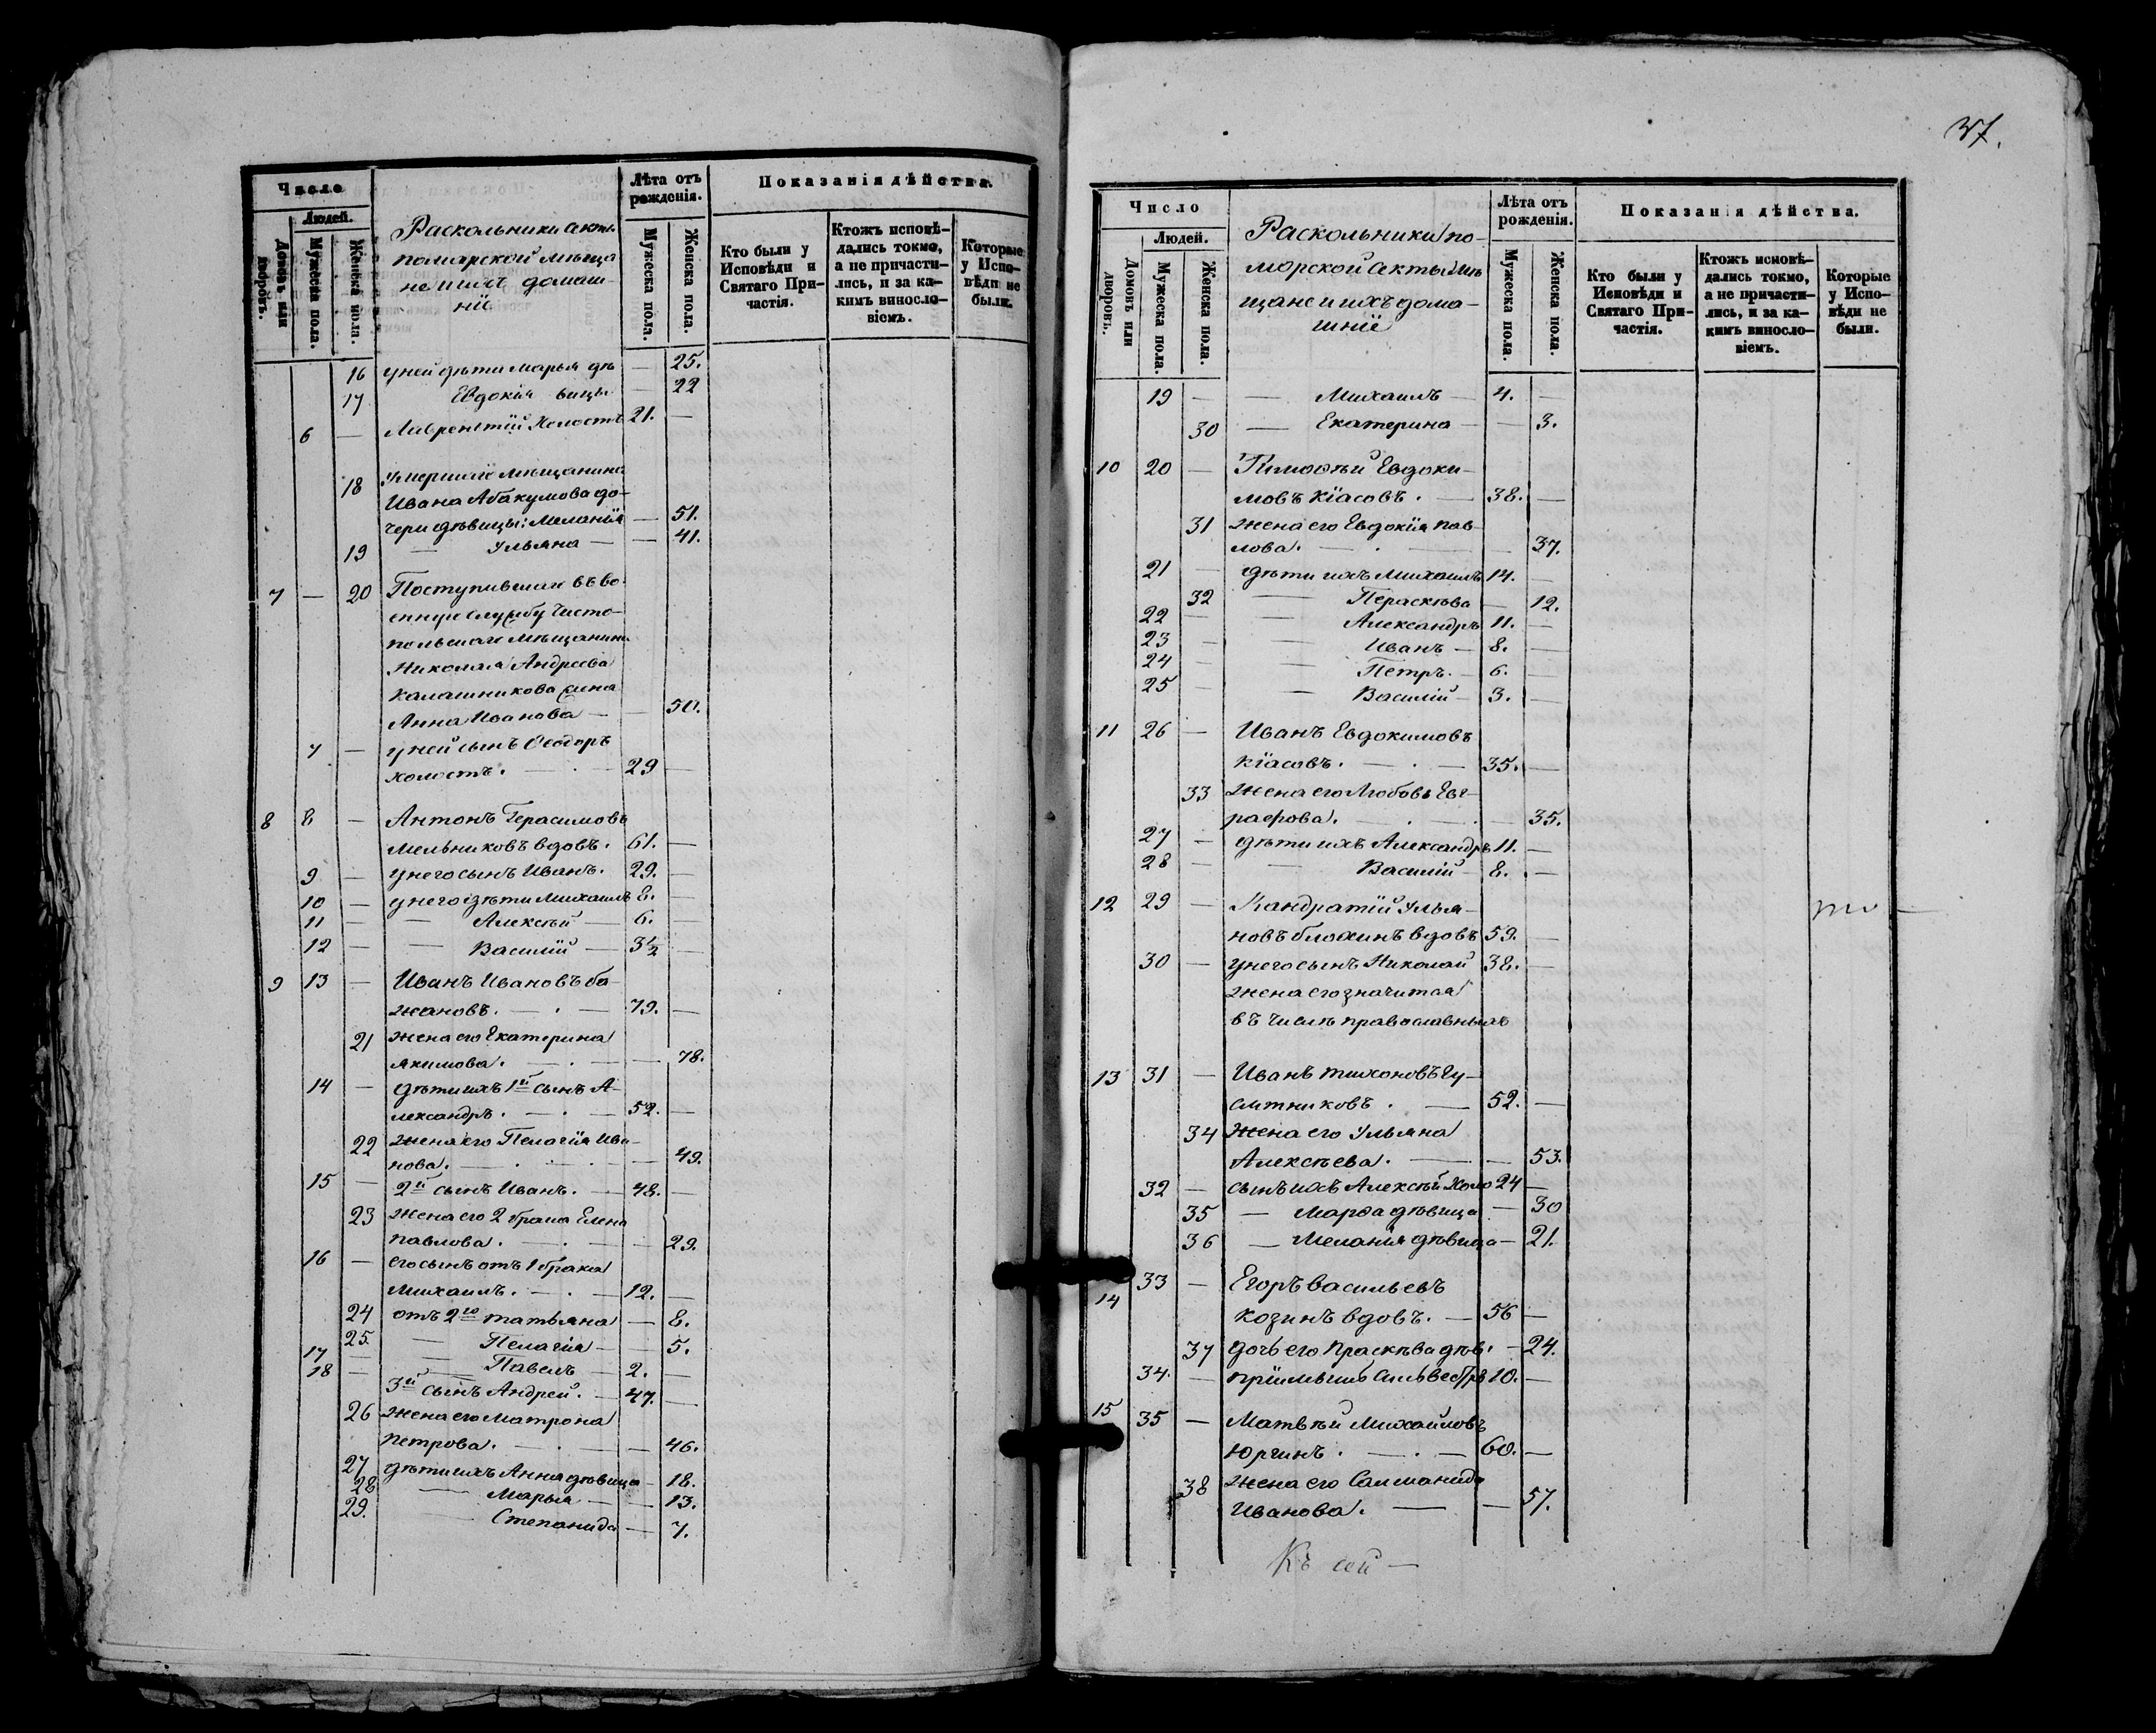 Число
Людей.
Домовъ или дворовъ.
Мужеска пола.
Женска пола.
Раскольники секты
поморской мѣща
не и ихъ домаш-
ніе
Лѣта отъ рожденія.
Мужеска пола.
Женска пола.
Показанія дѣйства.
Кто были у Исповѣди и Святаго При-частія.
Ктожъ исповѣ-дались токмо, а не причасти-лись, и за ка-кимъ винословіемъ.
Которые у Испо-вѣди не были.
16 у ней дѣти Марья дѣ — 25.
17 Евдокія вицы — 22
6 — Лаврентій Холостъ 21. —
18 Умершаго мѣщанина
Ивана Абакумова до-
чери дѣвицы: Меланія — 51.
19 — Ульяна — — 41.
7 — 20 Поступившаго въ во-
енную службу Чисто-
польскаго мѣщанина
Николая Андреева
Калашникова жена
Анна Иванова — — 50.
7 — у ней сынъ Ѳеодоръ
холостъ. — 29 —
8 8 — Антонъ Герасимовъ
Мельниковъ вдовъ. 61. —
9 — у него сынъ Иванъ. 29. —
10 — у него дѣти Михаилъ 8. —
11 — — Алексѣй — 6. —
12 — — Василій — 3½ —
9 13 — Иванъ Ивановъ Ба-
жановъ. — . — 79. —
21 жена его Екатерина
Якимова. — . — — 78.
14 — дѣти ихъ 1й сынъ А-
лександръ. — . — 52. —
22 жена его Пелагія Ива-
нова. — . — . — 49.
15 — 2й сынъ Иванъ. — 48. —
23 жена его 2 брака Елена
Павлова. — . — — 29.
16 — его сынъ отъ 1 брака
Михаилъ. — . — 12. —
24 отъ 2го Татьяна — 8.
25. — Пелагія — — 5.
17 — — Павелъ — 2. —
18 — 3й сынъ Андрей. — 47. —
26 жена его Матрона
Петрова. — . — — 46.
27 дѣти ихъ Анна дѣвица — 18.
28 — Марья — — 13.
29. — Степанида — 7.
37.
Число
Людей.
Домовъ или дворовъ.
Мужеска пола.
Женска пола.
Раскольники по-
морской секты мѣ
щане и ихъ дома-
шніе
Лѣта отъ рожденія.
Мужеска пола.
Женска пола.
Показанія дѣйства.
Кто были у Исповѣди и Святаго При-частія.
Ктожъ исповѣ-дались токмо, а не причасти-лись, и за ка-кимъ винословіемъ.
Которые у Испо-вѣди не были.
19 — — Михаилъ — 4. —
30 — Екатерина — — 3.
10 20 — Тимоѳѣй Евдоки-
мовъ Кіасовъ. — 38. —
31 жена его Евдокія Пав-
лова. — . — — 37.
21 — дѣти ихъ Михаилъ 14. —
32 — Параскѣва — 12.
22 — — Александръ 11. —
23 — Иванъ — 8. —
24 — — Петръ. — 6. —
25 — — Василій — 3. —
11 26 — Иванъ Евдокимовъ
Кіасовъ. — . — 35. —
33 жена его Любовь Евг-
рафова. — . — . — 35.
27 — дѣти ихъ Александръ 11. —
28 — — Василій — 8. —
12 29 — Кандратій Улья-
новъ Блохинъ вдовъ 59. —
30 — у него сынъ Николай 38. —
жена его значится
въ числѣ православныхъ
13 31 — Иванъ Тихоновъ Гу-
ситниковъ . — 52. —
34 жена его Ульяна
Алексѣева. — — 53.
32 — сынъ ихъ Алексѣй Холо 24 —
35 — Марѳа дѣвица — 30
36 — Меланія дѣвица — 21.
14 33 — Егоръ Васильевъ
Козинъ вдовъ. — 56 —
37 дочь его Праскѣва дѣв. — 24.
34. — пріимышъ Сильвестръ 10. —
15 35 — Матвѣй Михайловъ
Юргинъ. — . — 60. —
38 жена его Саломанида
Иванова. — — 57.
Къ сей —